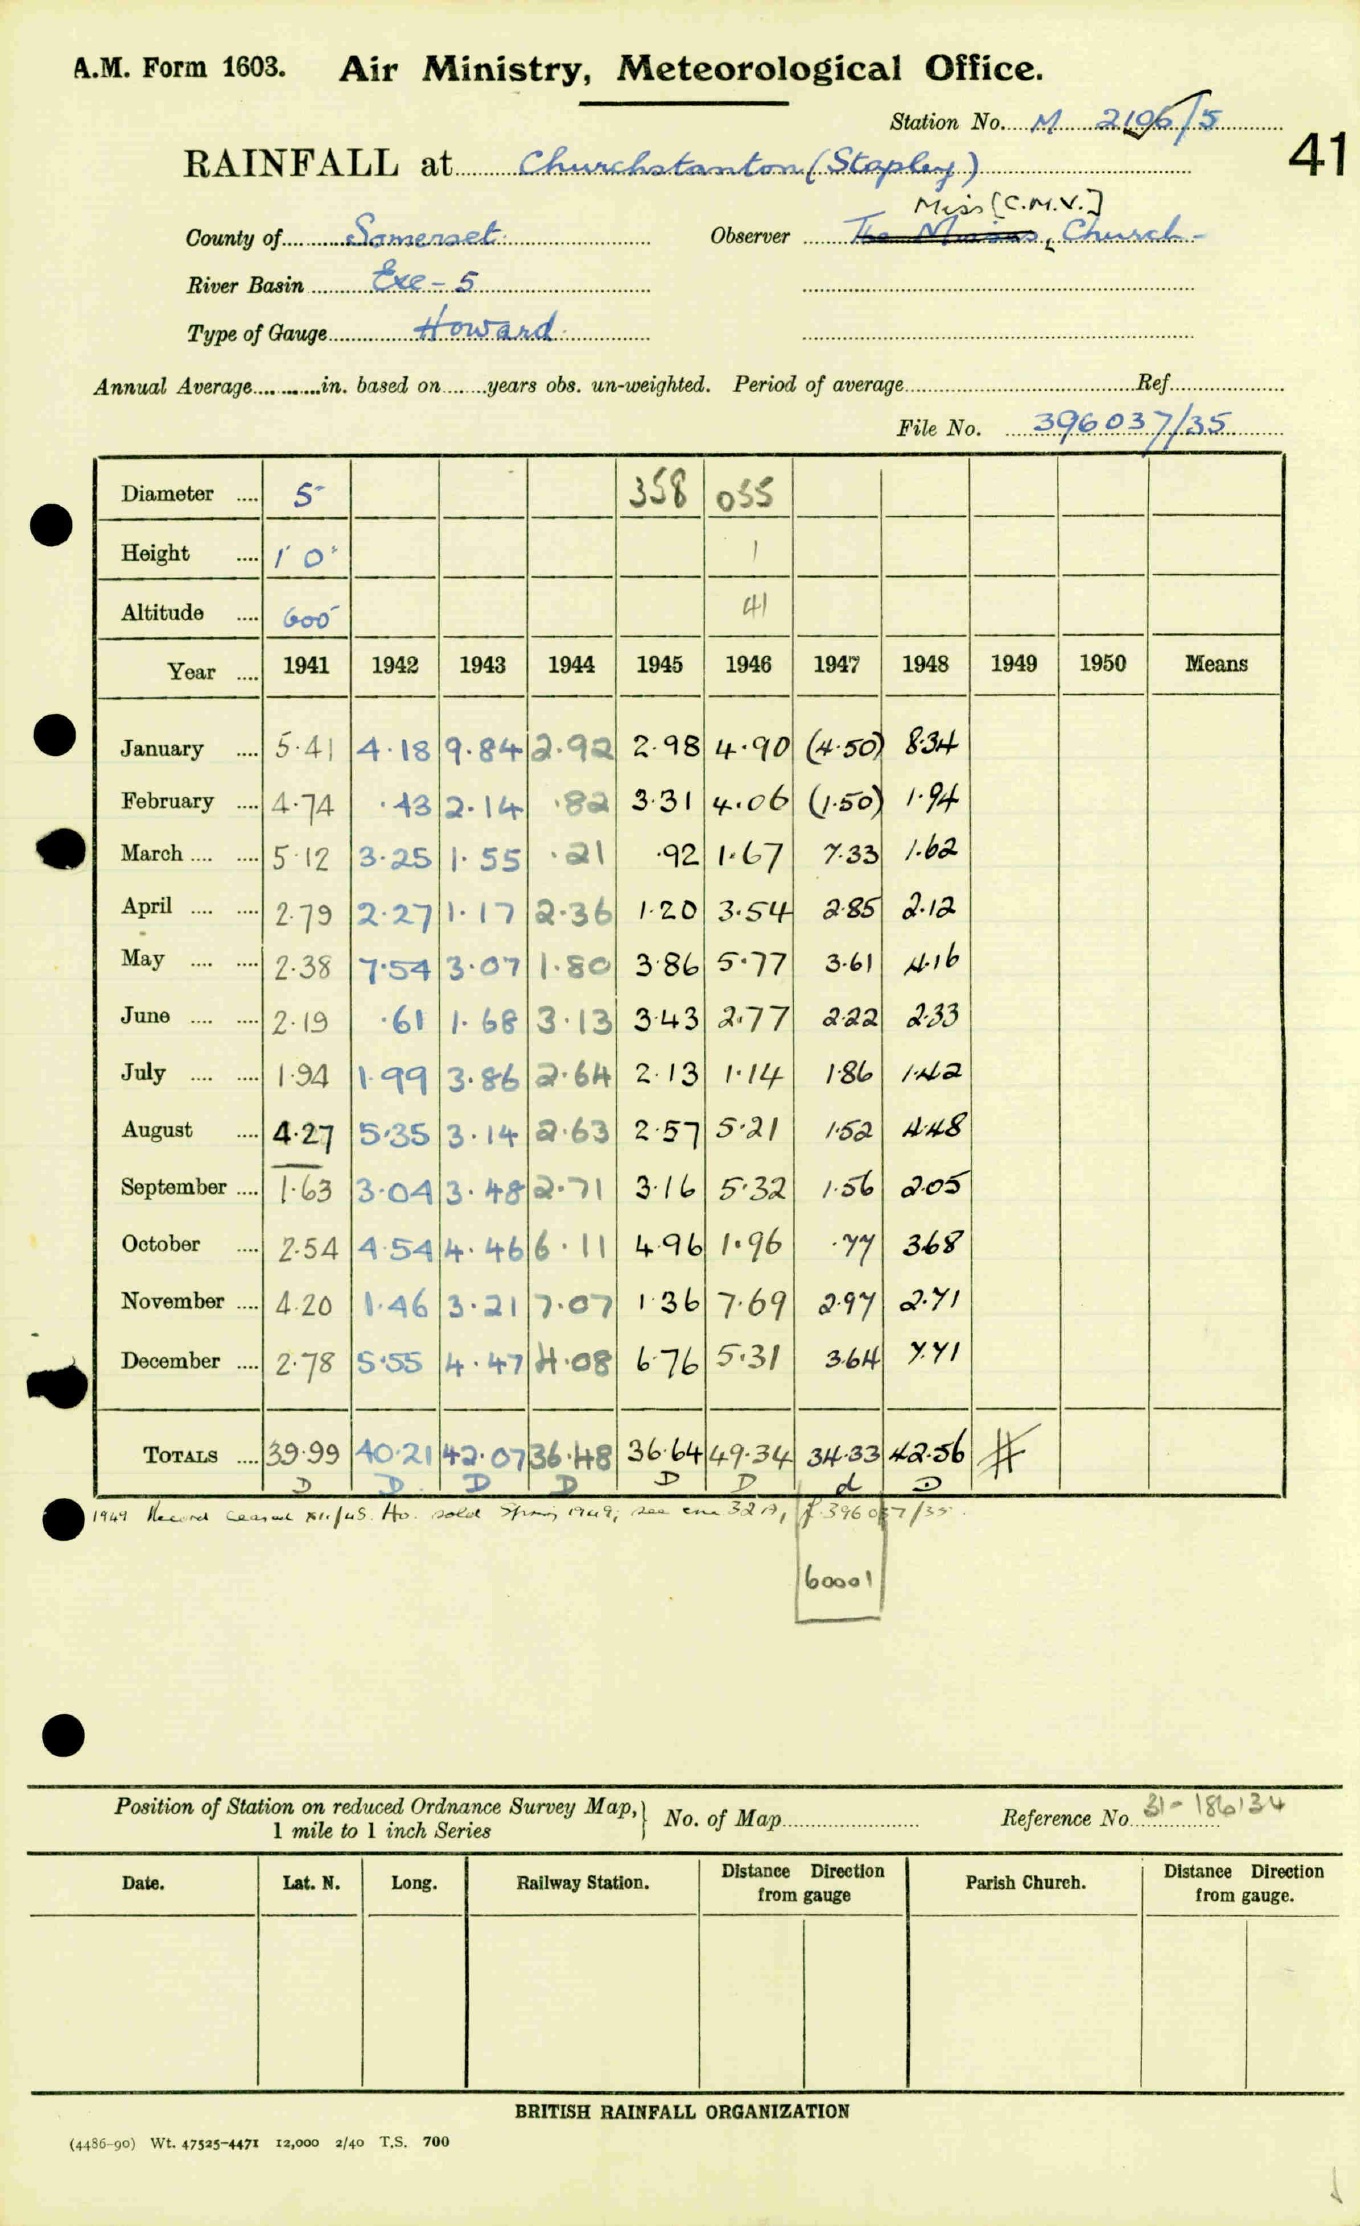 A.M. Form 1603. Air Ministry, Meteorological Office.
Station No. M 2106/5
41
RAINFALL at Churchstanton (Stapley)
Miss [C.M.V.]
County of Somerset Observer The Misses Church
River Basin Exe - 5
Type of Gauge Howard
Annual Average in. based on years obs. un-weighted. Period of average Ref.
File No. 396037/35
Diameter .... 5 358 055
Height .... 1' 0" 1
Altitude .... 600 41
Year .... 1941 1942 1943 1944 1945 1946 1947 1948 1949 1950 Means
January .... 5.41 4.18 9.84 2.92 2.98 4.90 (4.50) 8.34
February .... 4.74 .43 2.14 .82 3.31 4.06 (1.50) 1.94
March .... .... 5.12 3.25 1.55 .21 .92 1.67 7.33 1.62
April .... .... 2.79 2.27 1.17 2.36 1.20 3.54 2.85 2.12
May .... .... 2.38 7.54 3.07 1.80 3.86 5.77 3.61 4.16
June .... .... 2.19 .61 1.68 3.13 3.43 2.77 2.22 2.33
July .... .... 1.94 1.99 3.86 2.64 2.13 1.14 1.86 1.42
August .... 4.27 5.35 3.14 2.63 2.57 5.21 1.52 4.48
September .... 1.63 3.04 3.48 2.71 3.16 5.32 1.56 2.05
October .... 2.54 4.54 4.46 6.11 4.96 1.96 .77 3.68
November .... 4.20 1.46 3.21 7.07 1.36 7.69 2.97 2.71
December .... 2.78 5.55 4.47 4.08 6.76 5.31 3.64 7.71
TOTALS .... 39.99 40.21 42.07 36.48 36.64 49.34 34.33 42.56 #
D D D D D D d D
1949 Record ceased XII/48. Ho. sold Spring 1949; see 32A, f. 396037/35
60001
Position of Station on reduced Ordnance Survey Map, } No. of Map Reference No. 31-186134
1 mile to 1 inch Series
Date. Lat. N. Long. Railway Station. Distance from gauge Direction Parish Church. Distance from gauge. Direction
BRITISH RAINFALL ORGANIZATION
(4486-90) Wt. 47525-4471 12,000 2/40 T.S. 700